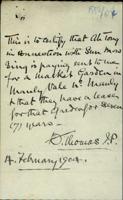 This is to certify that Ah Tong
in connection with Sun Moo
Sing is paying rent to me
for a Market Garden in
Manly Vale Nr Manly
& that they have a lease
for that for seven
(7) years—
Thomas J.P.
4. February 1904.